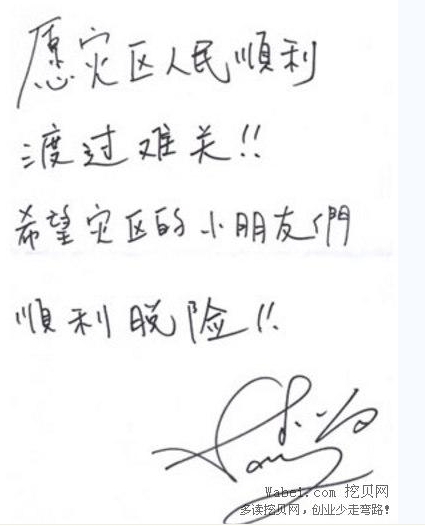 愿灾区人民順利
渡过难关!!
希望灾区的小朋友們
順利脱险!!
Wabei.com 挖贝网
多读挖贝网，创业少走弯路!